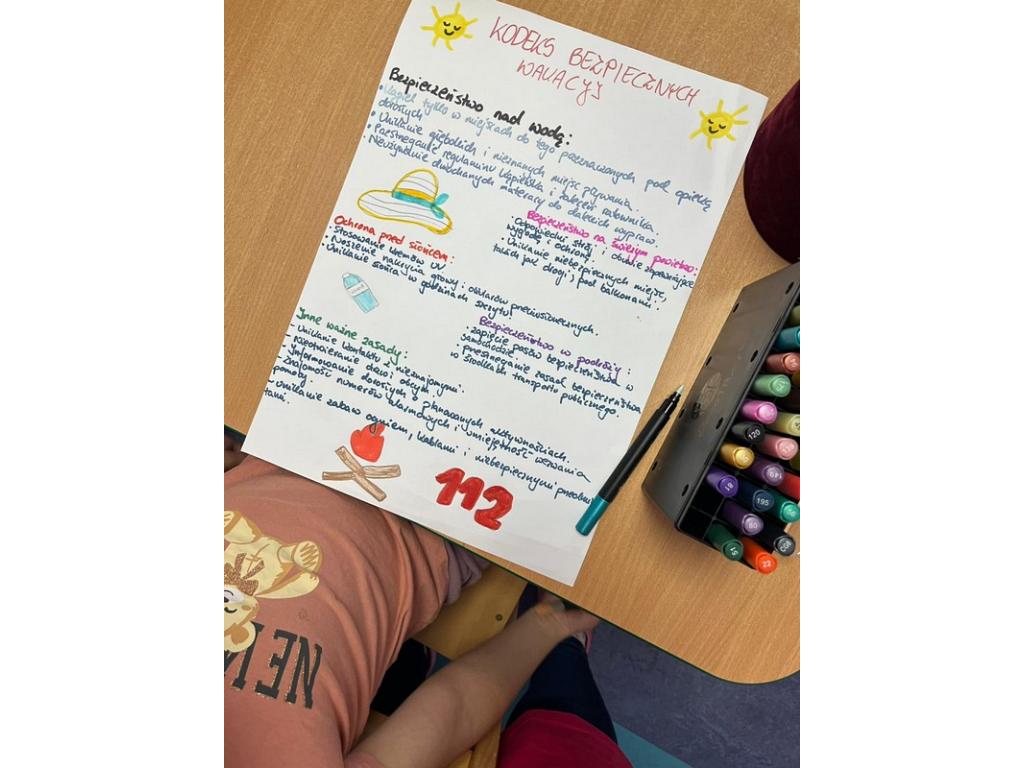 KODEKS BEZPIECZNYCH
WAKACYJ
Bezpieczeństwo nad wodą:
• Kąpiel tylko w miejscach do tego przeznaczonych pod opieką
dorosłych
• Unikanie głębokich i nieznanych miejsc pływania.
• Przestrzeganie regulaminu kąpieliska i zaleceń ratownika.
• Nieużywanie dmuchanych materacy do dalekich wypraw.
Bezpieczeństwo na świeżym powietrzu:
• Odpowiedni strój i obuwie zapewniające
wygodę i ochronę.
• Unikanie niebezpiecznych miejsc,
takich jak drogi, pod balkonami.
Ochrona przed słońcem:
• Stosowanie kremów UV
• Noszenie nakrycia głowy i okularów przeciwsłonecznych.
• Unikanie słońca w godzinach szczytu.
Bezpieczeństwo w podróży:
• zapięcie pasów bezpieczeństwa w
samochodzie.
• przestrzeganie zasad bezpieczeństwa
w środkach transportu publicznego.
Inne ważne zasady:
- Unikanie kontaktu z nieznajomymi.
- Nieotwieranie drzwi obcym.
- Informowanie dorosłych o planowanych aktywnościach.
- Znajomość numerów alarmowych i umiejętność wezwania
pomocy.
- unikanie zabaw ogniem, kablami i niebezpiecznymi
112
NEW
120
195
51
22